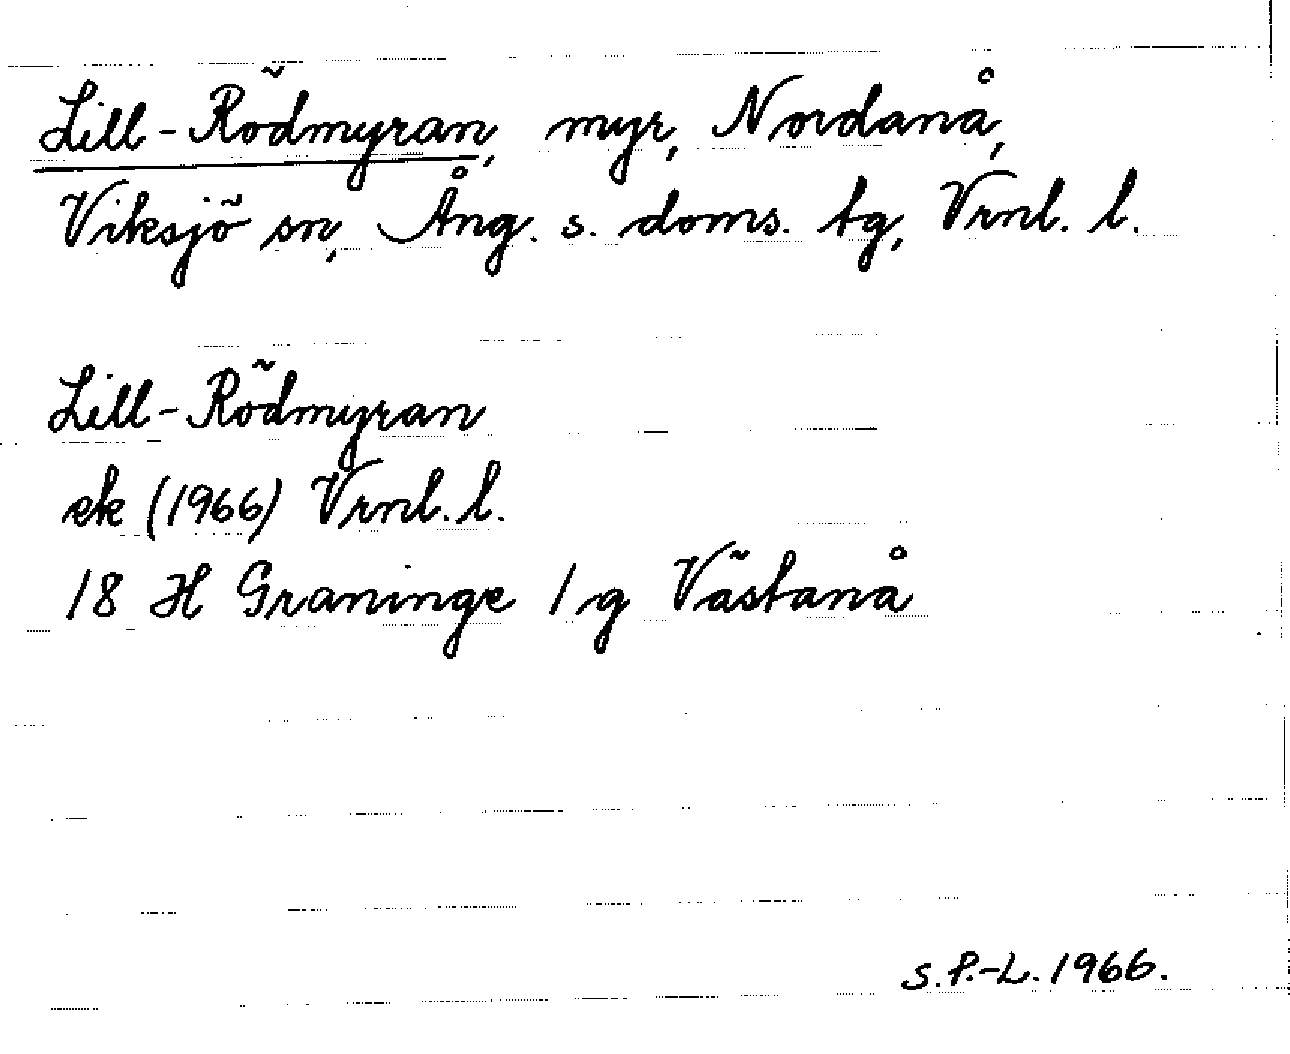 Lill-Rödmyran, myr, Nordanå,
Viksjö sn, Ång. s. doms. tg, Vrnl. l.
Lill-Rödmyran
ek (1966) Vrnl. l.
18 H Graninge 1 g Västanå
S.P.-L. 1966.